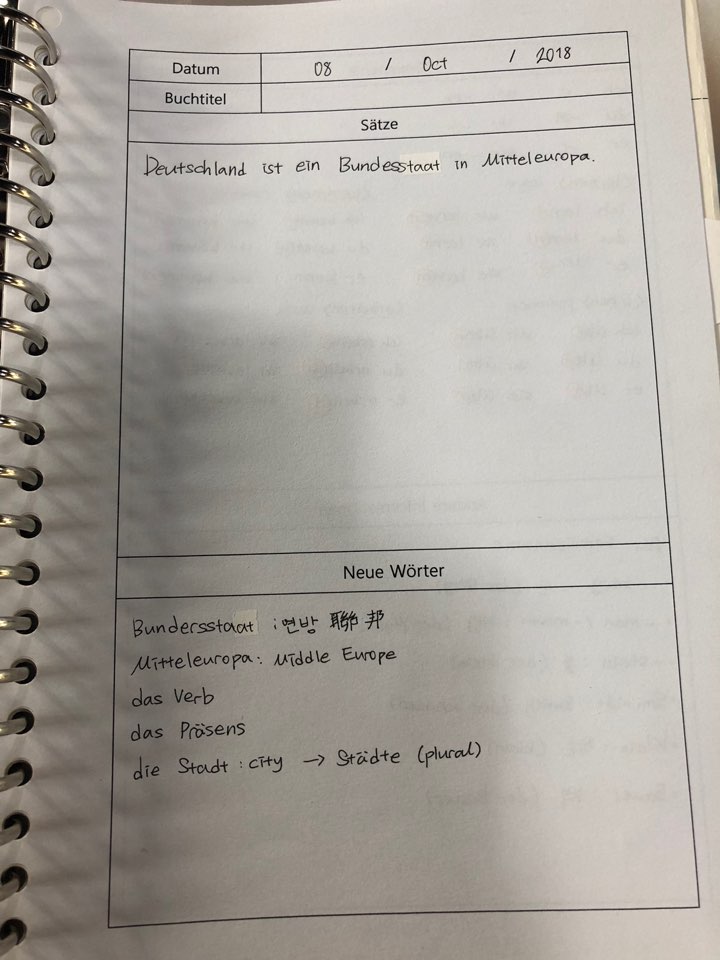 Datum 08 / Oct / 2018
Buchtitel
Sätze
Deutschland ist ein Bundesstaat in Mitteleuropa.
Neue Wörter
Bundersstaat : 연방 聯邦
Mitteleuropa: Middle Europe
das Verb
das Präsens
die Stadt : city → Städte (plural)